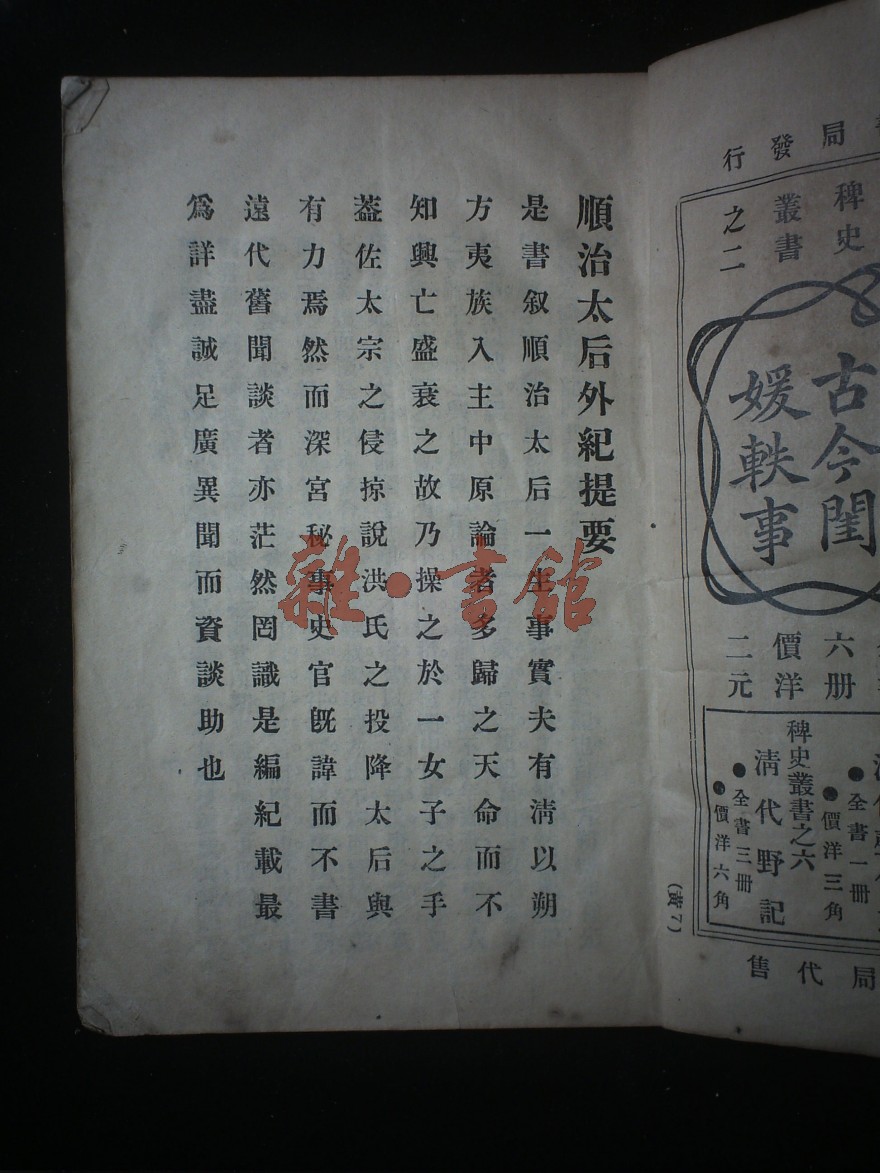 順治太后外紀提要
是書叙順治太后一生事實夫有淸以朔
方夷族入主中原論者多歸之天命而不
知興亡盛衰之故乃操之於一女子之手
蓋佐太宗之侵掠說洪氏之投降太后與
有力焉然而深宮秘事史官旣諱而不書
遠代舊聞談者亦茫然罔識是編紀載最
爲詳盡誠足廣異聞而資談助也
雜·書館
局發行
稗史
叢書
之二
古今閨
媛軼事
六册
價洋
二元
全書一册
價洋三角
稗史叢書之六
淸代野記
全書三册
價洋六角
(黃7)
局代售